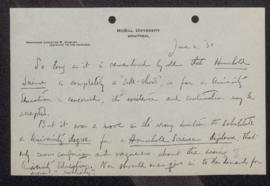 McGILL UNIVERSITY
MONTREAL
June 2, 31
So long as it is considered by all that Household
Science is completely a "side-show", as far as University
Education is concerned, its existence and continuation may be
accepted.
But it was a move in the wrong direction to substitute
a University degree for a Household Science diploma that
only means confusion and vagueness about the word
University Education. Nor should we give in to the demand for